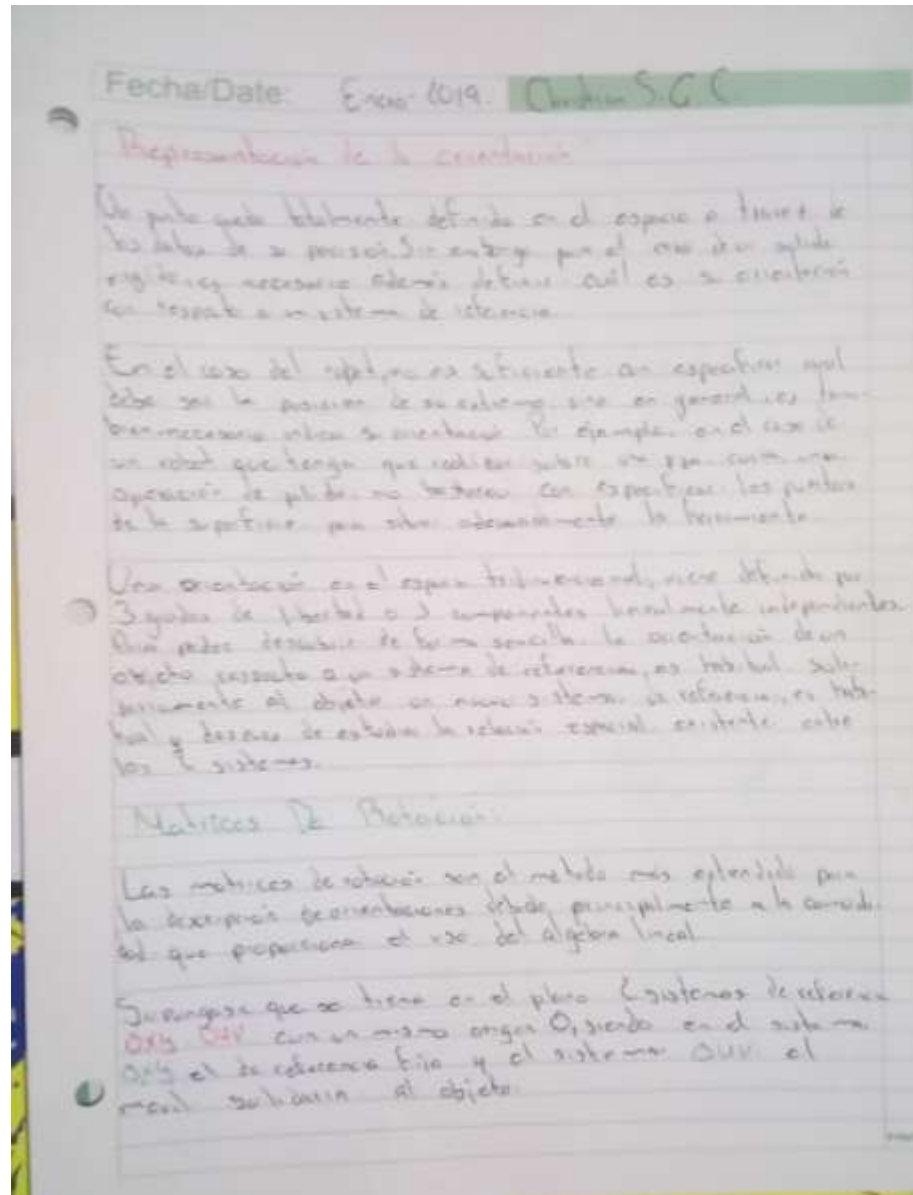 Fecha/Date: Enero-2019. Christian S. G. C.
Representación de la orientación
Un punto queda totalmente definido en el espacio a traves de
los datos de su posición. Sin embargo para el caso de un solido
rigido, es necesario además definir cuál es su orientación
con respecto a un sistema de referencia.
En el caso del robot, no es suficiente con especificar cual
debe ser la posicion de su extremo, sino en general, es tam-
bien necesario indicar su orientación. Por ejemplo, en el caso de
un robot que tenga que realizar sobre una curva una
operación de pulido, no bastaria con especificar los puntos
de la superficie para situar adecuadamente la herramienta
Una orientación en el espacio tridimensional, viene definida por
3 grados de libertad o 3 componentes linealmente independientes.
Para poder describir de forma sencilla la orientación de un
objeto respecto a un sistema de referencia, es habitual
al objeto un nuevo sistema de referencia, es habi-
tual y despues de estudiar la relación espacial existente entre
los 2 sistemas.
Matrices De Rotación.
Las matrices de rotación son el metodo más extendido para
la descripción de orientaciones debido principalmente a la comodi-
dad que proporciona el uso del algebra lineal.
Supongase que se tiene en el plano 2 sistemas de referencia
OXY OUV con un mismo origen O, siendo en el sistema
OXY el de referencia fijo y el sistema OUV el
movil solidario al objeto.